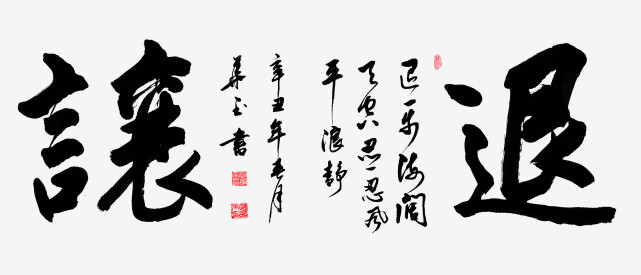 退
退一步海闊
天空忍一忍風
平浪靜
辛丑年春月
華玉書
讓